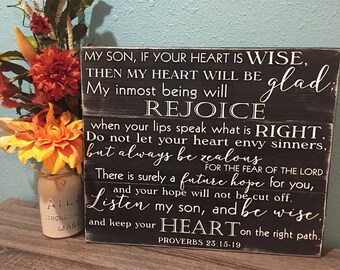 MY SON, IF YOUR HEART IS WISE,
THEN MY HEART WILL BE glad;
My inmost being will
REJOICE
when your lips speak what is RIGHT.
Do not let your heart envy sinners,
but always be zealous
FOR THE FEAR OF THE LORD
There is surely a future hope for you,
and your hope will not be cut off.
Listen my son, and be wise,
and keep your HEART on the right path.
PROVERBS 23:15-19
MASON